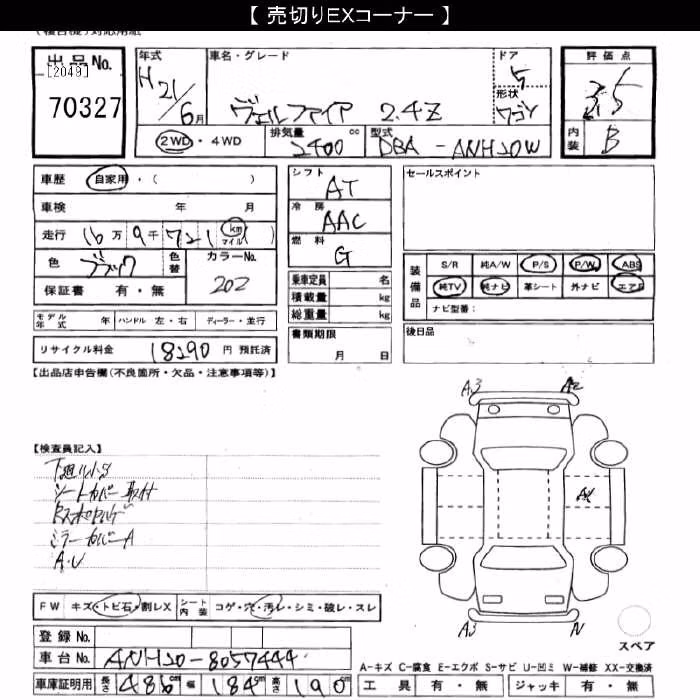 【 売切りEXコーナー 】
出品No.
[2049]
70327
年式
H21/6月
車名・グレード
ヴェルファイア 2.4Z
ドア
5
形状
ワゴン
評価点
3.5
内装
B
2WD・4WD
排気量
2400 cc
型式
DBA-ANH20W
車歴 自家用・( )
車検 年 月
走行 16万9千721 km マイル ( )
色 ブラック 色替
カラーNo.
202
保証書 有・無
シフト
AT
冷房
AAC
燃料
G
乗車定員 名
積載量 kg
総重量 kg
書類期限
月 日
セールスポイント
装備品
S/R 純A/W P/S P/W ABS
純TV 純ナビ 革シート 外ナビ エアB
ナビ型番:
後日品
モデル年式 年 ハンドル 左・右 ディーラー・並行
リサイクル料金 18290 円 預託済
【出品店申告欄(不良箇所・欠品・注意事項等)】
【検査員記入】
シートカバー取付
ミラーカバーA
A.U
A3 A2
A2
A3 N
スペア
FW キズ・トビ石・割レX シート内装 コゲ・穴・汚レ・シミ・破レ・スレ
登録No.
車台No. ANH20-8057444
車庫証明用 長さ 486cm 幅 184cm 高さ 190cm
A-キズ C-腐食 E-エクボ S-サビ U-凹ミ W-補修 XX-交換済
工具 有・無 ジャッキ 有・無